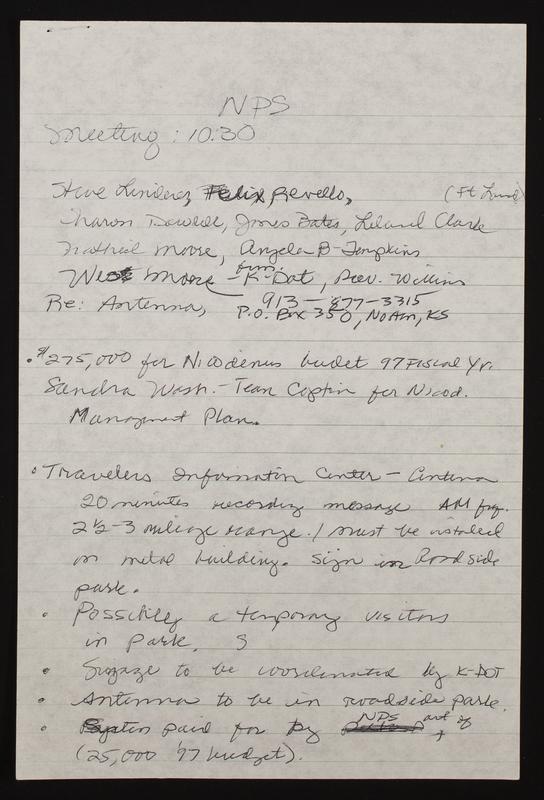 NPS
Meeting : 10:30
Steve Linderer, Felix Revello, (Ft Larned)
Sharon Dowdell, James Bates, Leland Clark
Nathiel Moore, Angela B-Tompkins
West Moore - from K-Dot, Rev. Wilkins
Re: Antenna, 913-877-3315
P.O. Box 350, Norton, KS
• $275,000 for Nicodemus budet 97 Fiscal Yr.
Sandra Wash. - Team Captin for Nicod.
Managment Plan.
• Travelers Information Center - Antenna
20 minutes recording message AM frq.
2 1/2-3 mileage range. / must be installed
on metal building. Sign in Roadside
park.
• Possibley a temporary visitors
in Park.
• Sinage to be coordinated by K-DOT
• Antenna to be in roadside park.
• System paid for by NPS out of
(25,000 '97 budget).